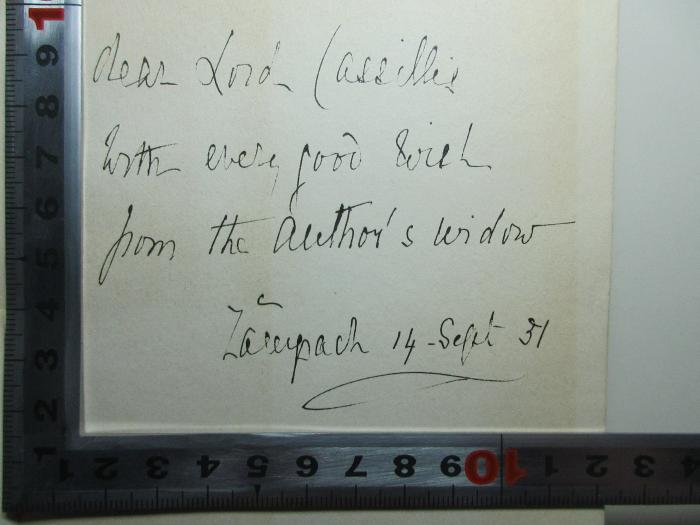 dear Lord Cassillis
with every good wish
from the author's widow
14 - Sept 31
9 8 7 6 5 4 3 2 1
1 2 3 4 5 6 7 8 9 10 1 2 3 4